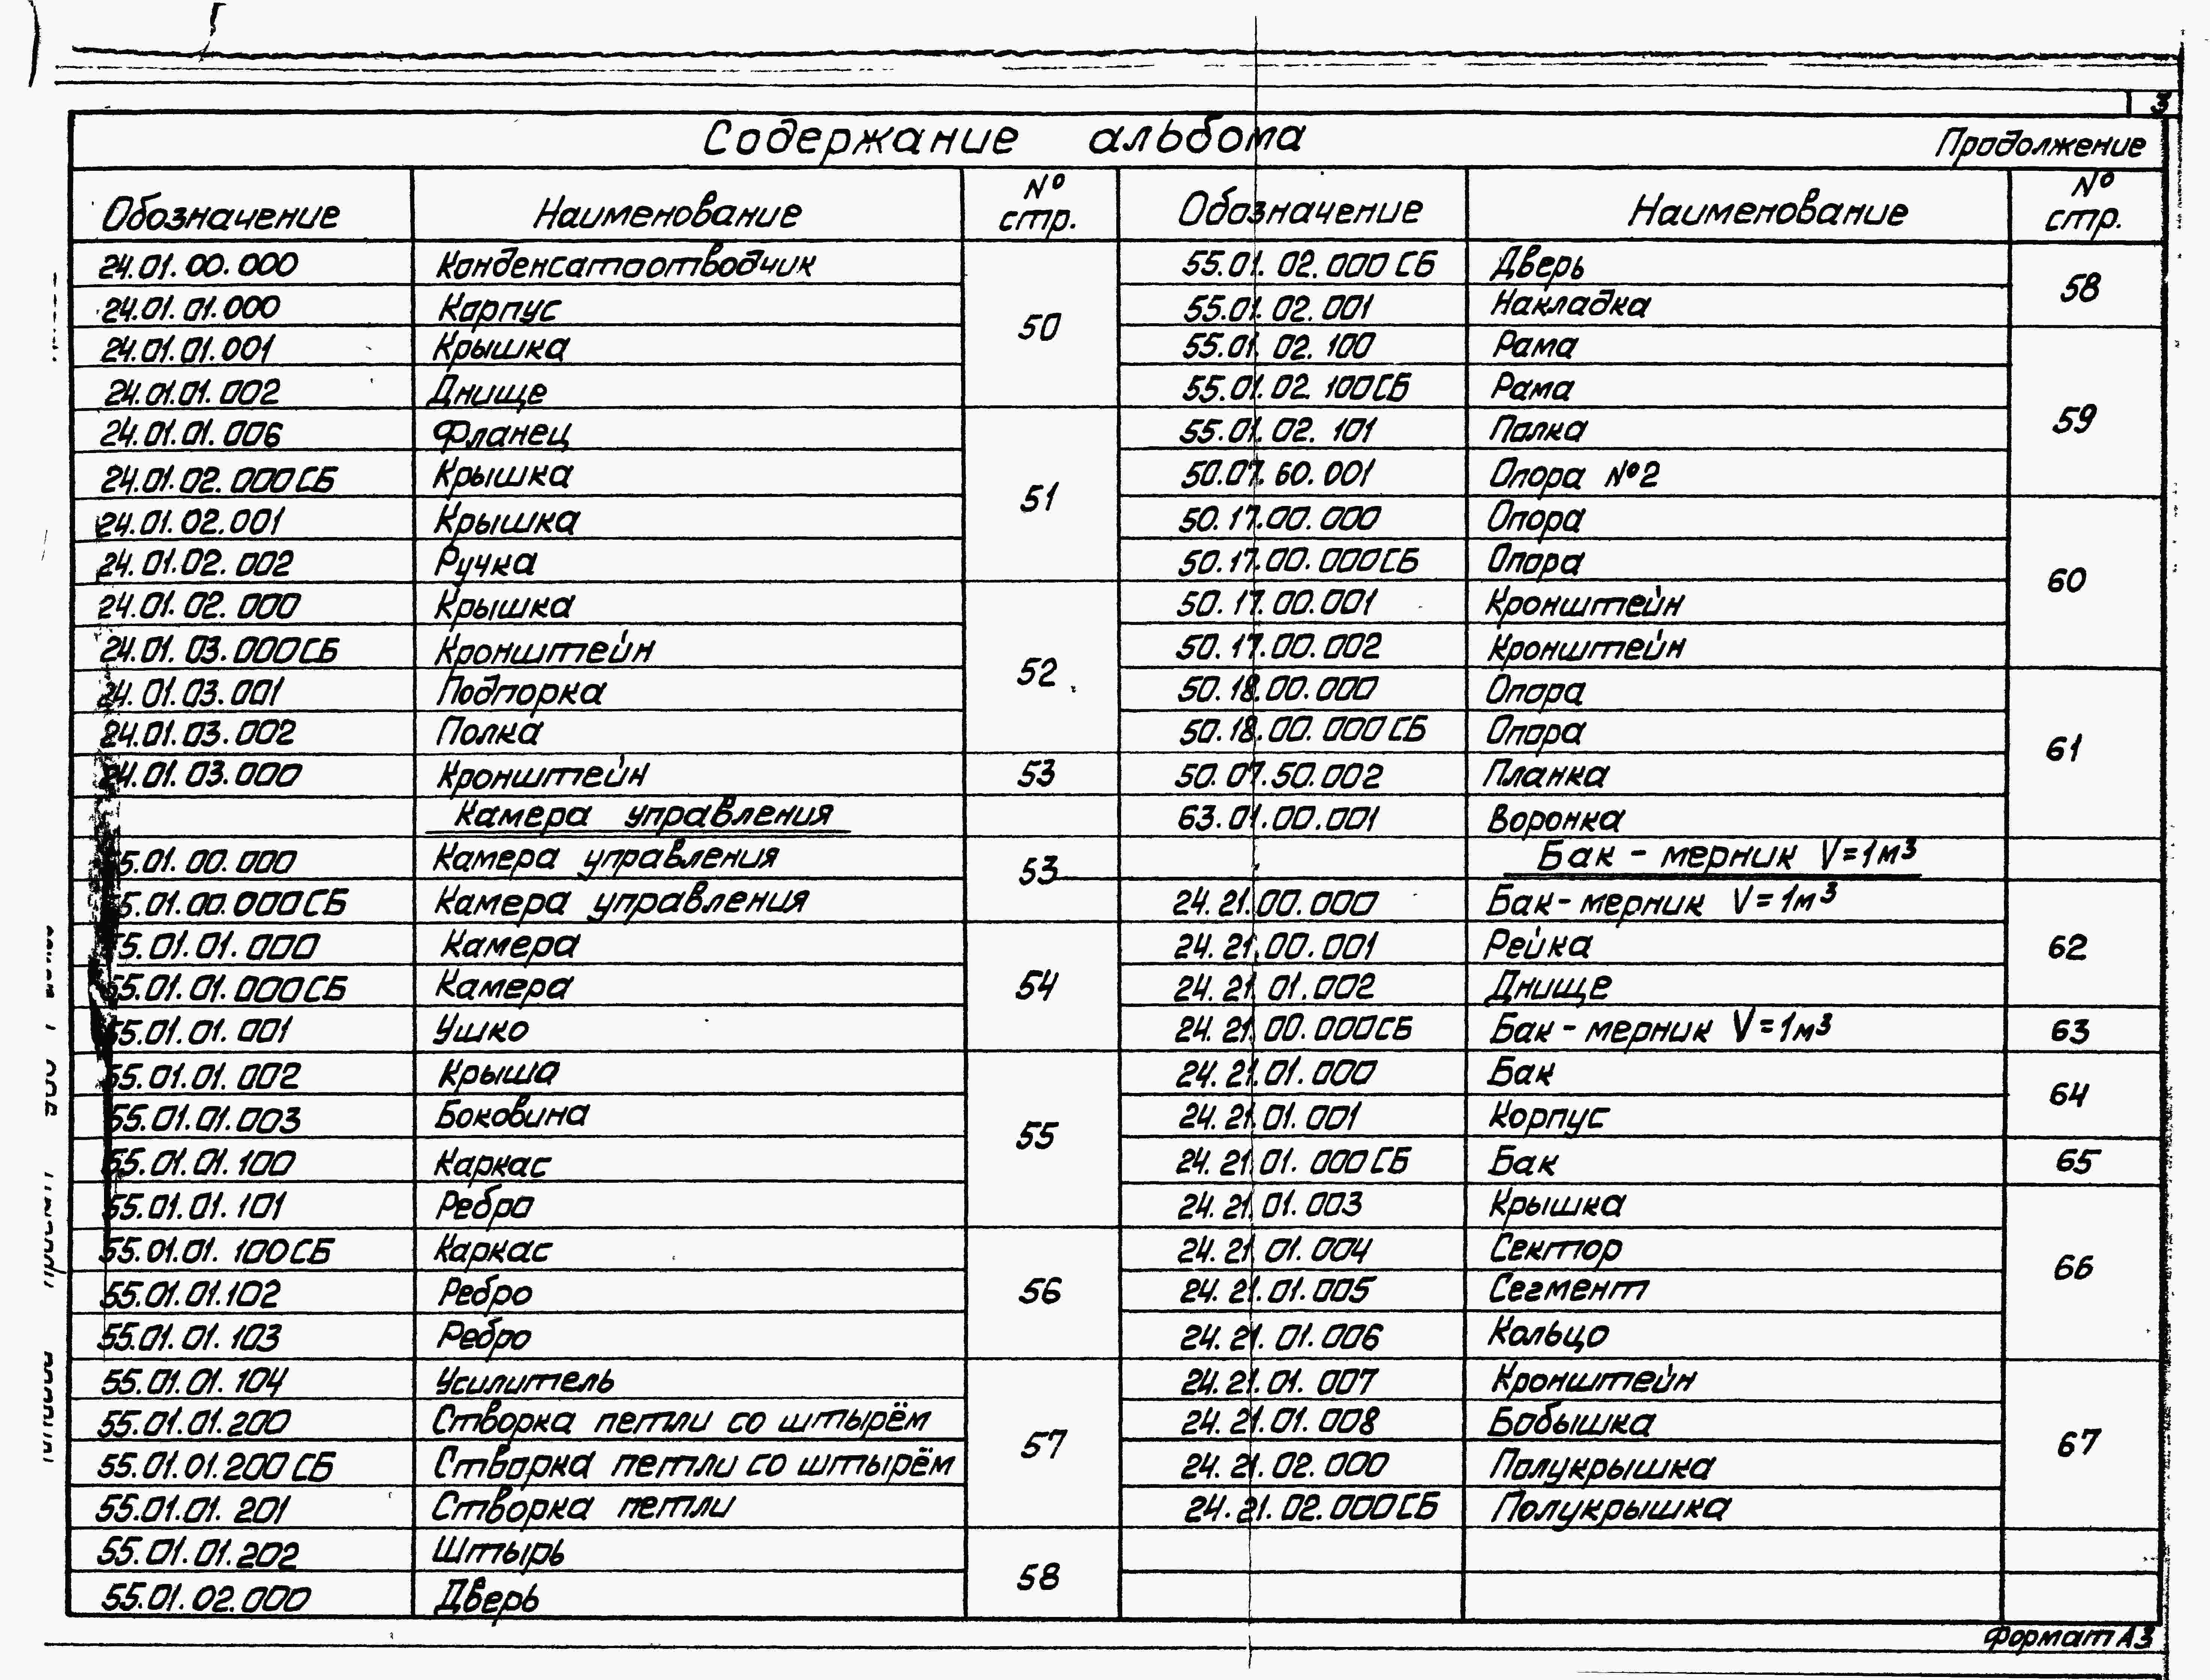 3
Содержание альбома
Продолжение
Обозначение Наименование № стр. Обозначение Наименование № стр.
24.01.00.000 Конденсатоотводчик 50
24.01.01.000 Корпус
24.01.01.001 Крышка
24.01.01.002 Днище
24.01.01.006 Фланец 51
24.01.02.000СБ Крышка
24.01.02.001 Крышка
24.01.02.002 Ручка
24.01.02.000 Крышка 52
24.01.03.000СБ Кронштейн
24.01.03.001 Подпорка
24.01.03.002 Полка
24.01.03.000 Кронштейн 53
Камера управления
55.01.00.000 Камера управления 53
55.01.00.000СБ Камера управления
55.01.01.000 Камера 54
55.01.01.000СБ Камера
55.01.01.001 Ушко
55.01.01.002 Крыша 55
55.01.01.003 Боковина
55.01.01.100 Каркас
55.01.01.101 Ребро
55.01.01.100СБ Каркас 56
55.01.01.102 Ребро
55.01.01.103 Ребро
55.01.01.104 Усилитель 57
55.01.01.200 Створка петли со штырём
55.01.01.200СБ Створка петли со штырём
55.01.01.201 Створка петли
55.01.01.202 Штырь 58
55.01.02.000 Дверь
55.01.02.000СБ Дверь 58
55.01.02.001 Накладка
55.01.02.100 Рама 59
55.01.02.100СБ Рама
55.01.02.101 Полка
50.07.60.001 Опора №2
50.17.00.000 Опора 60
50.17.00.000СБ Опора
50.17.00.001 Кронштейн
50.17.00.002 Кронштейн
50.18.00.000 Опора 61
50.18.00.000СБ Опора
50.07.50.002 Планка
63.01.00.001 Воронка
Бак-мерник V=1м³
24.21.00.000 Бак-мерник V=1м³ 62
24.21.00.001 Рейка
24.21.01.002 Днище
24.21.00.000СБ Бак-мерник V=1м³ 63
24.21.01.000 Бак 64
24.21.01.001 Корпус
24.21.01.000СБ Бак 65
24.21.01.003 Крышка 66
24.21.01.004 Сектор
24.21.01.005 Сегмент
24.21.01.006 Кольцо
24.21.01.007 Кронштейн 67
24.21.01.008 Бобышка
24.21.02.000 Полукрышка
24.21.02.000СБ Полукрышка
Формат А3